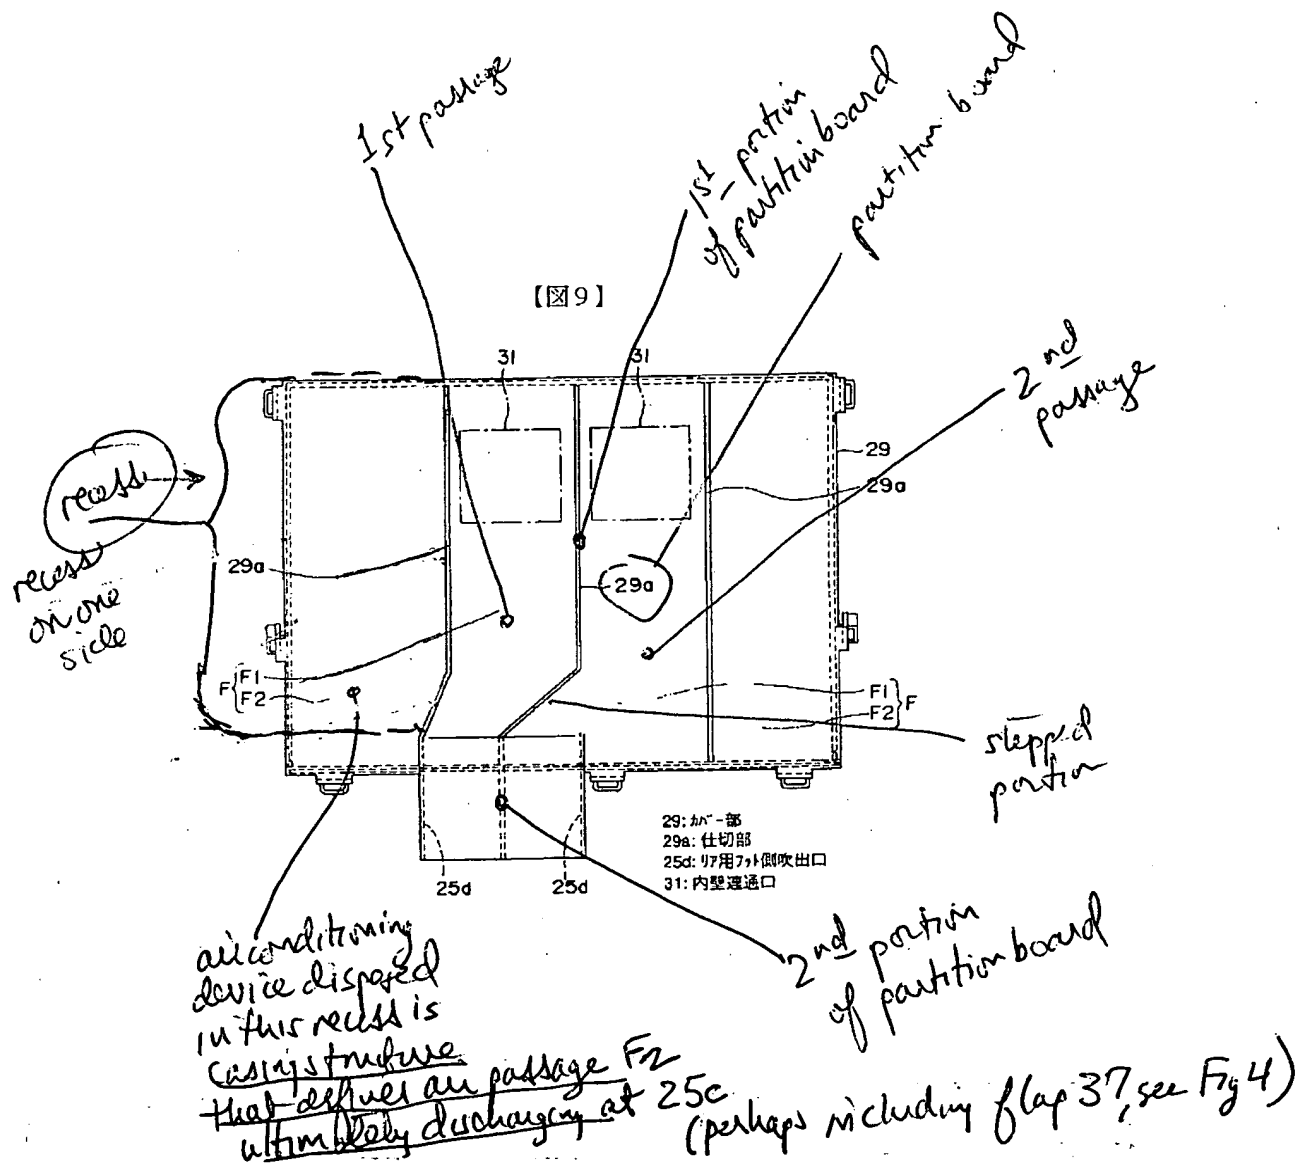 1st passage
1st portion
of partition board
partition board
【図9】
31
31
2nd
passage
29
29a
recess
recess
on one
side
29a
29a
F
F1
F2
F1
F2
F
stepped
portion
29: カバー部
29a: 仕切部
25d: リア用フット側吹出口
31: 内壁連通口
25d
25d
2nd portion
of partition board
air conditioning
device disposed
in this recess is
casing structure
that defines air passage F2
ultimately discharging at 25c
(perhaps including flap 37, see Fig 4)